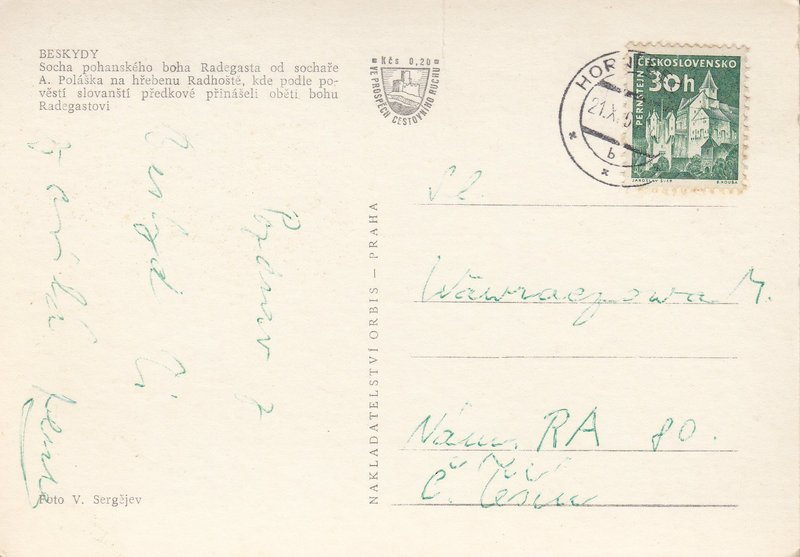 BESKYDY
Socha pohanského boha Radegasta od sochaře
A. Poláška na hřebenu Radhoště, kde podle po-
věstí slovanští předkové přinášeli oběti bohu
Radegastovi
Kčs 0,20
VE PROSPĚCH CESTOVNÍHO RUCHU
HORN
21.X.
b
ČESKOSLOVENSKO
30h
PERNŠTEJN
JAROSLAV ŠVÁB
B. HOUSA
Pozdrav z
Beskyd
Sl
Wawraczowa M.
Nám. RA 80.
Č. Těšín
NAKLADATELSTVÍ ORBIS — PRAHA
Foto V. Sergějev